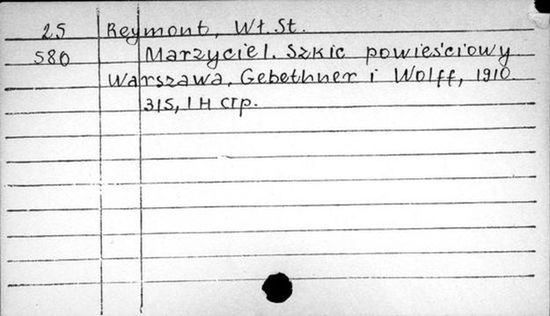 25 Reymont, Wł. St.
580 Marzyciel. Szkic powieściowy.
Warszawa, Gebethner i Wolff, 1910
315, 1 H стр.